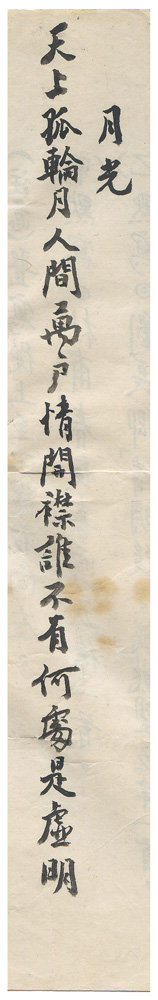 月光
天上孤輪月人間萬戶情開襟誰不有何處是虛明